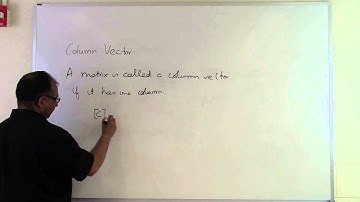 Column Vector
A matrix is called a column vector
if it has one column.
[C]